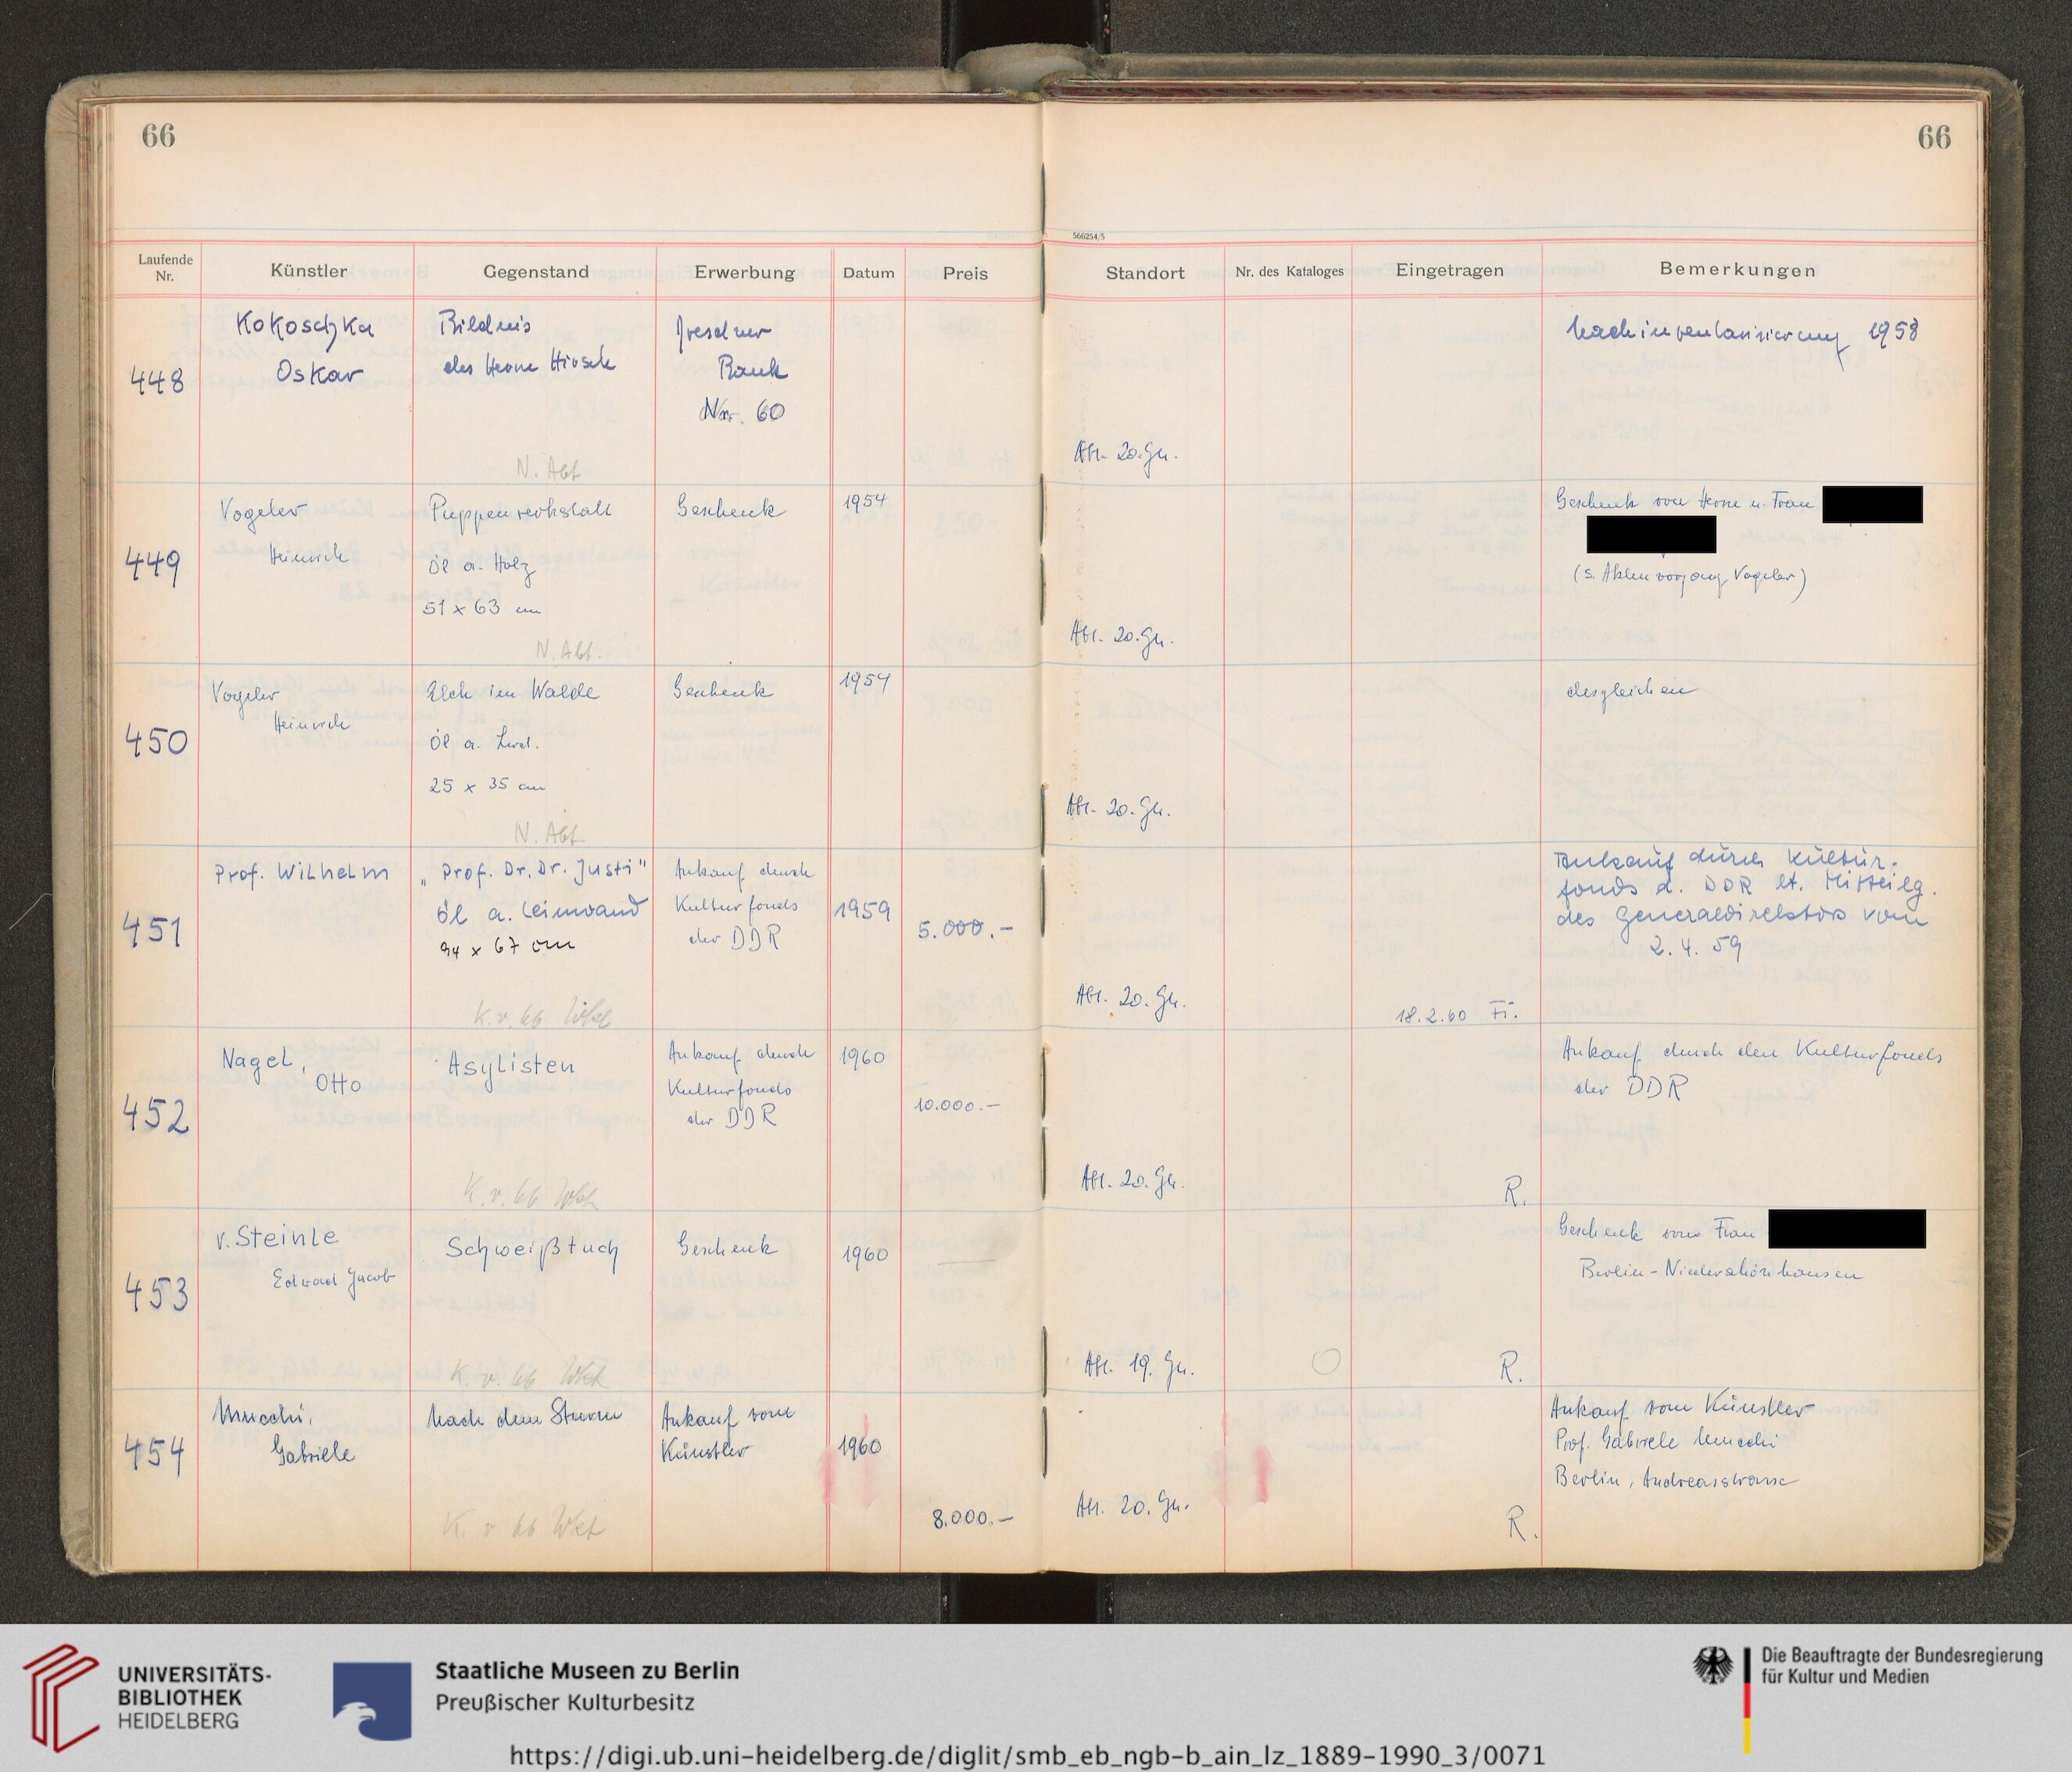 66
66
566254/5
Laufende Nr.
Künstler
Gegenstand
Erwerbung
Datum
Preis
Standort
Nr. des Kataloges
Eingetragen
Bemerkungen
448
Kokoschka
Oskar
Bildnis
des Herrn Hirsch
Dresdner
Bank
Nr. 60
N. Abt
Abt. 20. Jh.
Nachinventarisierung 1958
449
Vogeler
Heinrich
Puppenwerkstatt
Öl a. Holz
51 x 63 cm
N. Abt.
Geschenk
1954
Abt. 20. Jh.
Geschenk von Herrn u. Frau
(s. Aktenvorgang Vogeler)
450
Vogeler
Heinrich
Elch im Walde
Öl a. Lwd.
25 x 35 cm
N. Abt
Geschenk
1954
Abt. 20. Jh.
desgleichen
451
Prof. Wilhelm
„Prof. Dr. Dr. Justi"
Öl a. Leinwand
94 x 67 cm
K. v. 66
Ankauf durch
Kulturfonds
der DDR
1959
5.000.-
Abt. 20. Jh.
18.2.60 Fi.
Ankauf durch Kultur-
fonds d. DDR lt. Mitteilg.
des Generaldirektors vom
2. 4. 59
452
Nagel,
Otto
Asylisten
K. v. 66
Ankauf durch
Kulturfonds
der DDR
1960
10.000.-
Abt. 20. Jh.
R.
Ankauf durch den Kulturfonds
der DDR
453
v. Steinle
Edward Jacob
Schweißtuch
K. v. 66
Geschenk
1960
Abt. 19. Jh.
R.
Geschenk von Frau
Berlin-Niederschönhausen
454
Mucchi,
Gabriele
Nach dem Sturm
K. v. 66
Ankauf vom
Künstler
1960
8.000.-
Abt. 20. Jh.
R.
Ankauf vom Künstler
Prof. Gabriele Mucchi
Berlin, Andreasstrasse
UNIVERSITÄTS-
BIBLIOTHEK
HEIDELBERG
Staatliche Museen zu Berlin
Preußischer Kulturbesitz
Die Beauftragte der Bundesregierung
für Kultur und Medien
https://digi.ub.uni-heidelberg.de/diglit/smb_eb_ngb-b_ain_lz_1889-1990_3/0071